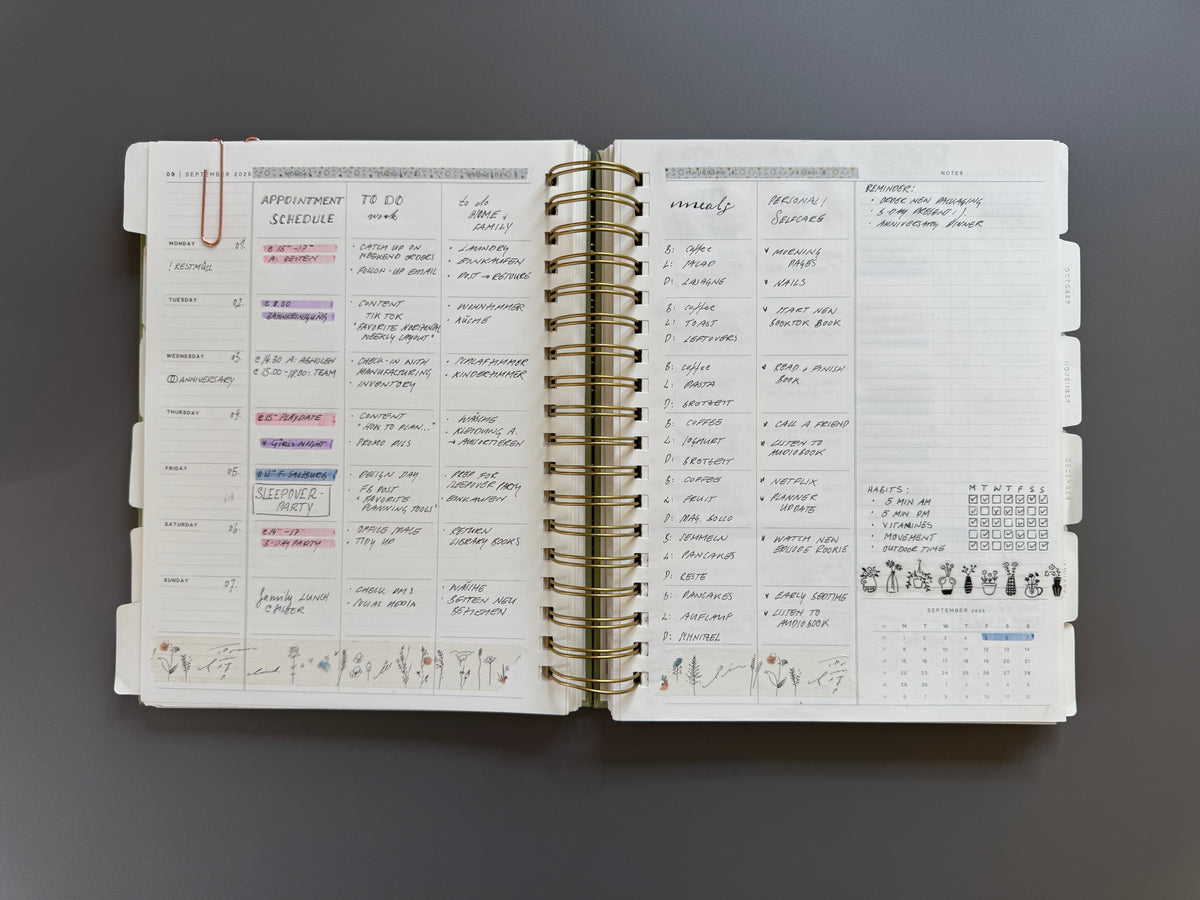 09 | SEPTEMBER 2025
APPOINTMENT
SCHEDULE
TO DO
work
to do
HOME +
FAMILY
MONDAY 01.
! RESTMÜLL
@ 15⁰⁰-17⁰⁰
A:
• CATCH UP ON
WEEKEND ORDERS
• FOLLOW-UP EMAIL
• LAUNDRY
• EINKAUFEN
• POST → RETOURE
TUESDAY 02.
@ 8.30
ZAHNREINIGUNG
• CONTENT
TIK TOK
"FAVORITE HORIZONTAL
WEEKLY LAYOUT"
• WOHNZIMMER
• KÜCHE
WEDNESDAY 03.
ANNIVERSARY
@ 14.30 A: ABHOLEN
@ 15.00-17.00: TEAM
• CHECK-IN WITH
MANUFACTURING
• INVENTORY
• SCHLAFZIMMER
• KINDERZIMMER
THURSDAY 04.
@ 15⁰⁰ PLAYDATE
GIRLS NIGHT
• CONTENT
"HOW TO PLAN..."
• PROMO PICS
• WÄSCHE
• KLEIDUNG A.
→ AUSSORTIEREN
FRIDAY 05.
@ 12⁰⁰ F. SALZBURG
SLEEPOVER-
PARTY
• DESIGN DAY
• FB POST
"FAVORITE
PLANNING TOOLS"
• PREP FOR
SLEEPOVER PARTY
• EINKAUFEN
SATURDAY 06.
@ 14⁰⁰-17⁰⁰
B-DAY PARTY
• OFFICE
• TIDY UP
• RETURN
LIBRARY BOOKS
SUNDAY 07.
family LUNCH
• CHECK DMS
• SOCIAL MEDIA
• WÄSCHE
• BETTEN NEU
BEZIEHEN
meals
PERSONAL/
SELFCARE
B: coffee
L: SALAD
D: LASAGNE
MORNING
PAGES
NAILS
B: coffee
L: TOAST
D: LEFTOVERS
START NEW
BOOKTOK BOOK
B: coffee
L: PASTA
D: BROTZEIT
READ + FINISH
BOOK
B: COFFEE
L: JOGHURT
D: BROTZEIT
CALL A FRIEND
LISTEN TO
AUDIOBOOK
B: COFFEE
L: FRUIT
D:
NETFLIX
PLANNER
UPDATE
B: SEMMELN
L: PANCAKES
D: RESTE
WATCH NEW
EPISODE ROOKIE
B: PANCAKES
L: AUFLAUF
D: SCHNITZEL
EARLY BEDTIME
LISTEN TO
AUDIOBOOK
NOTES
REMINDER:
• ORDER NEW PACKAGING
• B-DAY PRESENT :)
• ANNIVERSARY DINNER
HABITS: M T W T F S S
• 5 MIN AM
• 5 MIN PM
• VITAMINES
• MOVEMENT
• OUTDOOR TIME
OCTOBER
NOVEMBER
DECEMBER